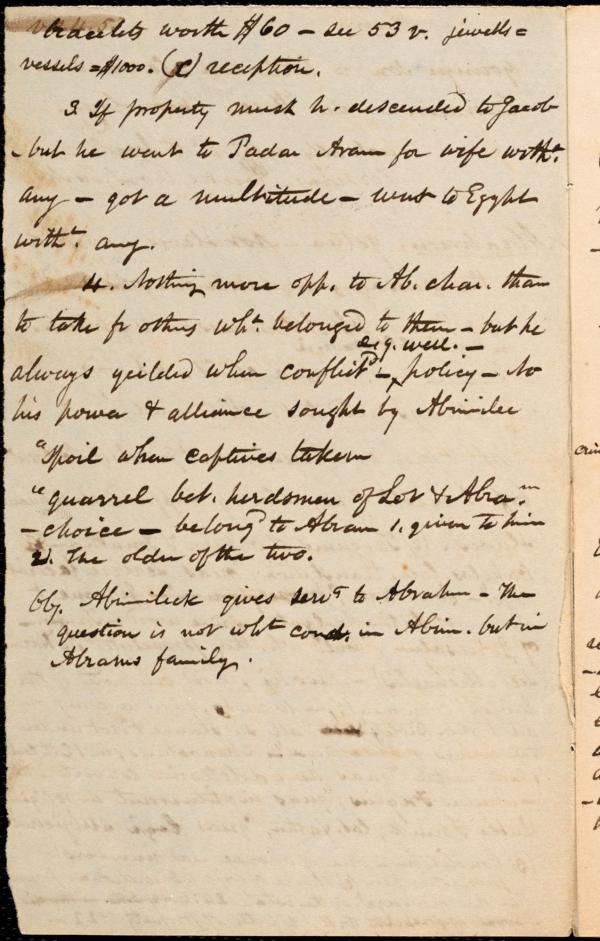 bracelets worth $60 – see 53 v. jewells =
vessels = $1000. (c) reception.
3 If property must h. descended to Jacob
– but he went to Padan Aram for wife witht.
any – got a multitude – went to Egypt
witht. any.
4. Nothing more opp. to Ab. char. than
to take fr others wht. belonged to them – but he
e.g. well. –
always yeilded when conflictd – policy – So
his power & alliance sought by Abimilec
"Spoil when captives taken
"quarrel bet. herdsmen of Lot & Abram
– choice – belongd to Abram 1. given to him
2. The older of the two.
Obj. Abimileck gives servts to Abrahm – The
question is not wht cond. in Abim. but in
Abrams family.